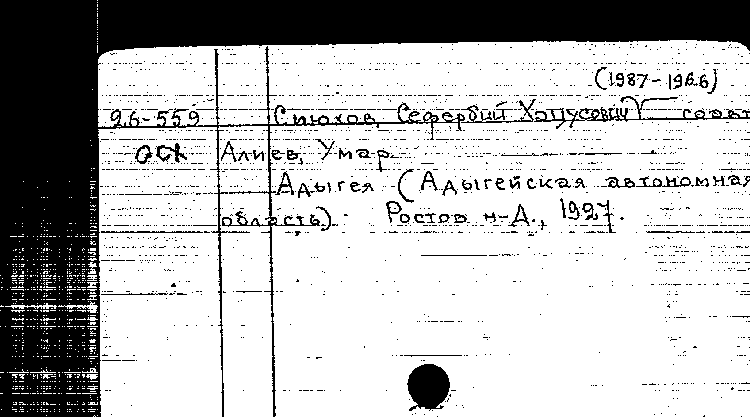 (1987-1966)
26-559 Сиюхов, Сефербий Хацусович соавт
ОСК Алиев, Умар
Адыгея (Адыгейская автономная
область). Ростов н-Д., 1927.